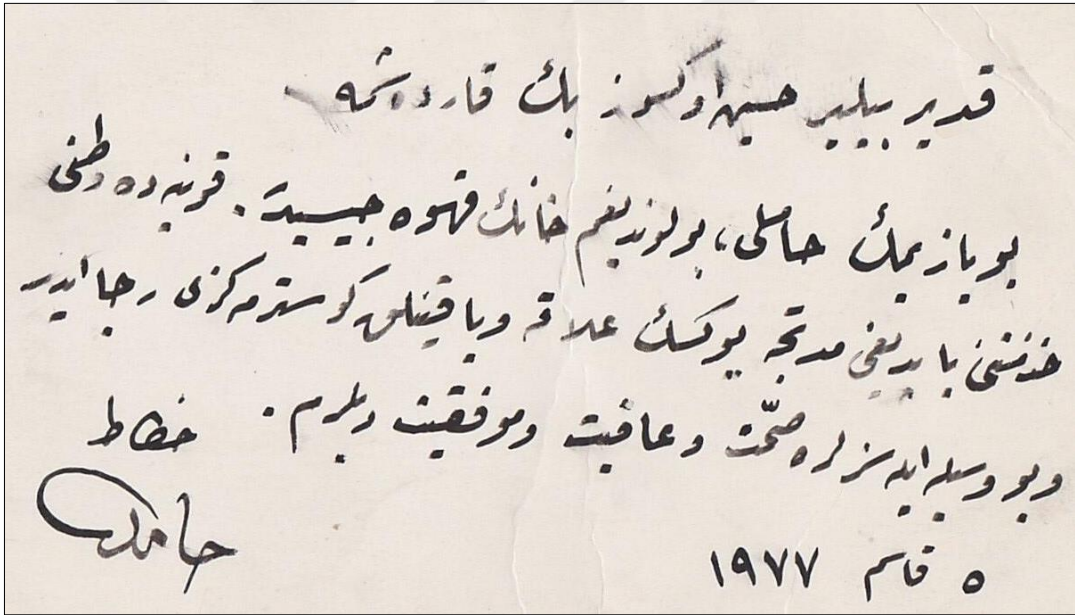 قدیر بیلیر حسین اوکسوز بك قارده‌شمه
بو یازیمك حاملی، بولوندیغم خانك قهوه جیسیدر. قریه‌ده وطنی
خدمتنی یاپدیغی مدتجه یوکسك علاقه ویاقینلق کوسترمه‌کزی رجا ایدر
وبو وسیله ایله سزلره صحّت وعافیت وموفقیت دیلرم.
خطاط
حامد
٥ قاسم ١٩٧٧